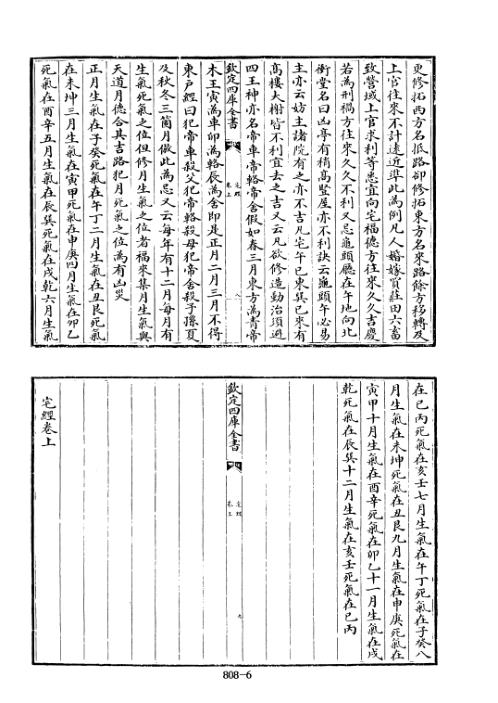 更修拓西方名抵路卻修拓東方名來路餘方移轉及
上官往來不計遠近準此為例凡人婚嫁買莊田六畜
致營域上官求利等悉宜向宅福徳方往來久久吉慶
若為刑禍方往來久久不利又忌龜頭廳在午地向北
衝堂名曰凶亭有稍高竪屋亦不利訣云龜頭午必易
主亦云妨主諸院有之亦不吉凡宅午巳東巽巳來有
髙樓大榭皆不利宜去之吉又云凡欲修造動治須避
四王神亦名帝車帝輅帝舍假如春三月東方為青帝
欽定四庫全書
宅經
卷上
八
木王寅為車卯為輅辰為舍即是正月二月三月不得
東户經曰犯帝車殺父犯帝輅殺母犯帝舍殺子孫夏
及秋冬三箇月倣此為忌又云每年有十二月每月有
生氣死氣之位但修月生氣之位者福來集月生氣與
天道月徳合其吉路犯月死氣之位為有凶災
正月生氣在子癸死氣在午丁二月生氣在丑艮死氣
在未坤三月生氣在寅甲死氣在申庚四月生氣在卯乙
死氣在酉辛五月生氣在辰巽死氣在戌乾六月生氣
在巳丙死氣在亥壬七月生氣在午丁死氣在子癸八
月生氣在未坤死氣在丑艮九月生氣在申庚死氣在
寅甲十月生氣在酉辛死氣在卯乙十一月生氣在戌
乾死氣在辰巽十二月生氣在亥壬死氣在巳丙
欽定四庫全書
宅經
卷上
九
宅經卷上
808-6